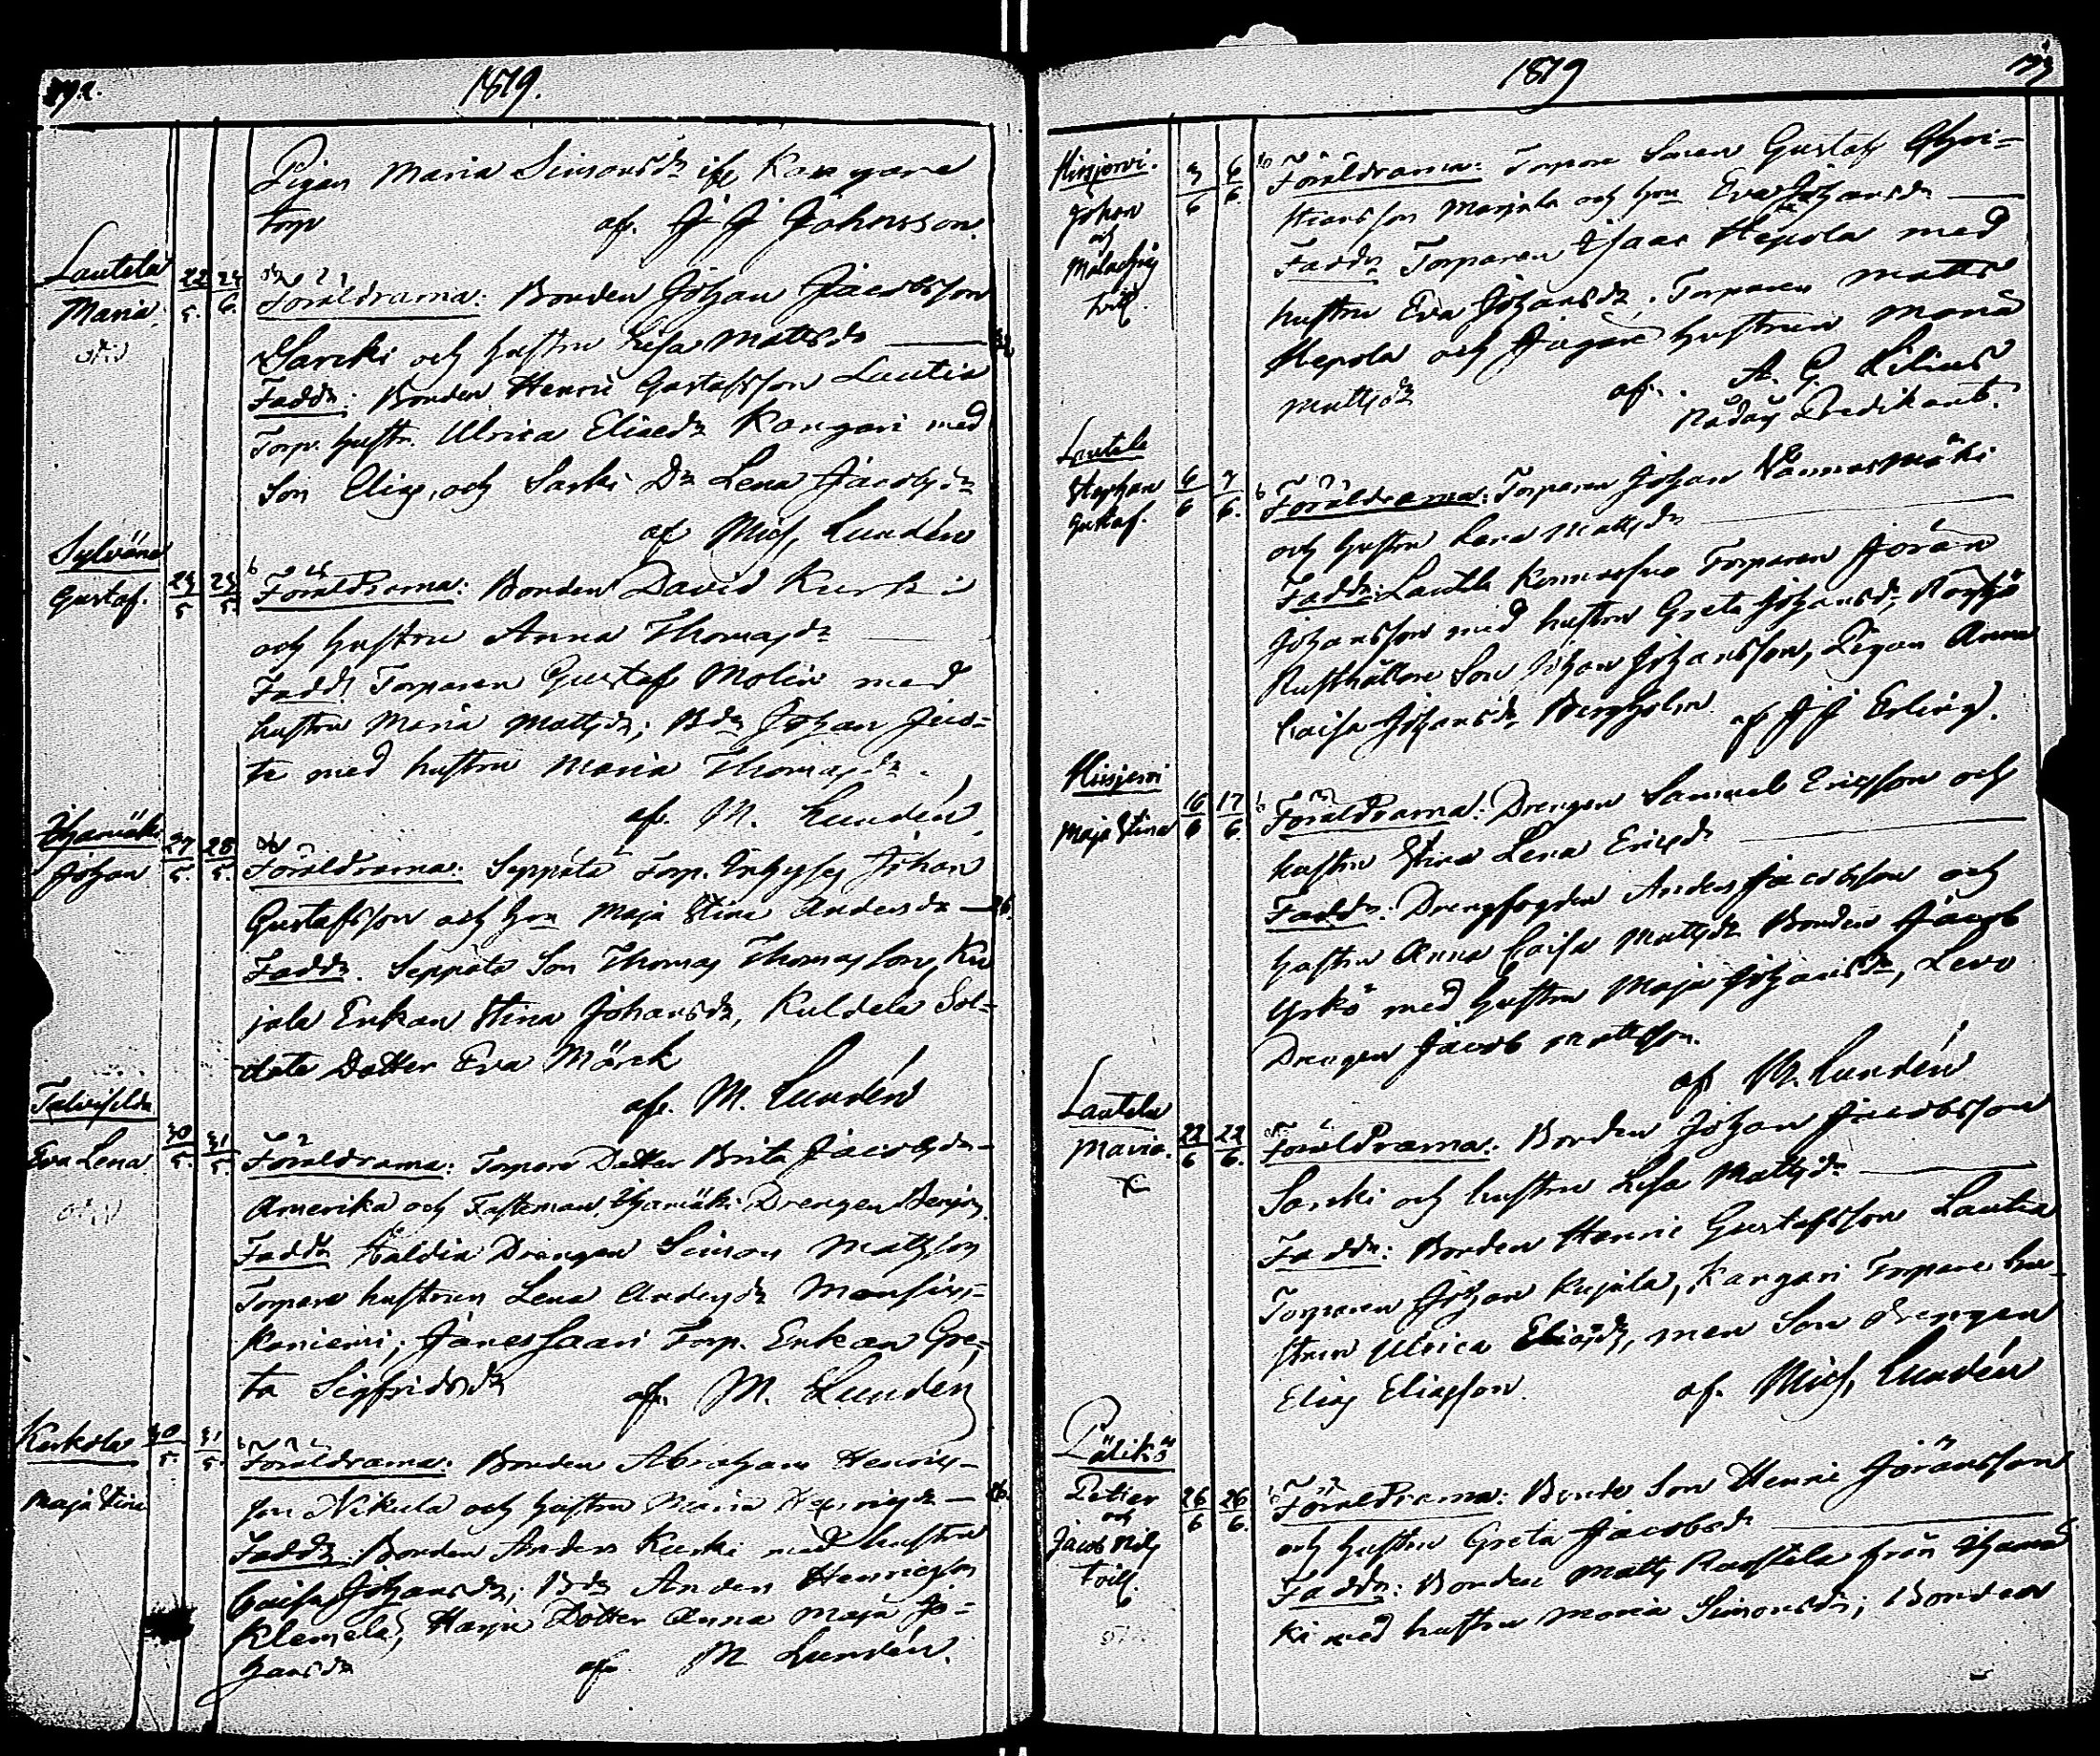 192.
1819.
Pigan Maria Simonsdr ifr. Kangare
torp af. J J Johnsson.
Lautela
Maria.
22/5. 24/6.
Föräldrarna: Bonden Johan Jacobsson
Sarcki och hustru Lisa Mattsdr
Faddr: Bonden Henric Gustafsson Lautia
Torp. hustr. Ulrica Eliædr Kangari med
Son Elias, och Sarki Dr Lena Jacobsdr
af Mich. Lundén
Sylvänä
Gustaf.
23/5 23/5.
Föräldrarna: Bonden David Kurki
och hustru Anna Thomasdr
Faddr Torparen Gustaf Molin med
hustru Maria Mattsdr; Bdn Johan Jus=
te med hustru Maria Thomasdr.
af. M. Lundén
Yhamäki
Johan
27/5. 28/5.
Föräldrarna: Seppälä Torp. Inhyses Johan
Gustafsson och hon Maja Stina Andersdr
Faddr. Seppälä Son Thomas Thomasson, Ku
jala Enkan Stina Johansdr, Kuldela Sol=
date Dotter Eva Mörck
af. M. Lundén
Eva Lena
30/5. 31/5.
Föräldrarna: Torpare Dotter Brita Jacobsdr
Amerika och Fästeman, Yhamäki Drengen Benjam.
Faddr Haldin Drengen Simon Mattsson
Torpare hustrun Lena Andersdr Mansik=
kaniemi; Jänessaari Torp. Enkan Gre=
ta Sigfridsdr af. M. Lundén
Karkola
Maja Stina
30/5. 31/5.
Föräldrarna: Bonden Abraham Henrics=
son Nikula och hustru Maria Henricsdr
Faddr Bonden Anders Kurki med hustru
Caisa Johansdr; Bdn Anders Henricsson
Klemelä, Harju Dotter Anna Maja Jo=
hansdr af M Lundén.
1819
193
Hirsjervi.
Johan
och
Malachias
tvill.
3/6 6/6
Föräldrarna: Torpare Sonen Gustaf Chri=
stiansson Marjala och hon Eva Johansdr
Faddr Torparen Isaac Hepola med
hustru Eva Johansdr. Torparen Matts
Hepola och Jägare hustrun Maria
Mattsdr af. A. G. Lilius
Nådårs Predikant.
Lautela
Stephan
Gustaf.
6/6 7/6.
Föräldrarna: Torparen Johan Wannasmäki
och hustru Lena Mattsdr
Faddr: Lautela Torparen Jöran
Johansson med hustru Greta Johansdr,
Rusthållare Son Johan Johansson, Pigan Anna
Caisa Johansdr Bergholm af J J Erling.
Hirsjervi
Maja Stina
16/6 17/6.
Föräldrarna: Drengen Samuel Ericsson och
hustru Stina Lena Ericsdr
Faddr: Drengfogden Anders Jacobsson och
hustru Anna Caisa Mattsdr Bonden Jacob
Yrkö med hustru Maja Johansdr, Levo
Drengen Jacob Mattsson.
af M. Lundén
Lautela
Maria.
22/6 22/6.
Föräldrarna: Bonden Johan Jacobsson
Sarcki och hustru Lisa Mattsdr
Faddr: Bonden Henric Gustafsson Lautia
Torparen Johan Kujala, Kangari Torpare hu=
strun Ulrica Eliasdr, men Son Drengen
Elias Eliasson. af. Mich. Lundén
Pälikö
Petter
och
Jacob Nils
tvill.
26/6 26/6.
Föräldrarna: Bonde Son Henric Jöransson
och hustru Greta Jacobsdr
Faddr: Bonden Matts från Yhamä
ki med hustru Maria Simonsdr; Bonden